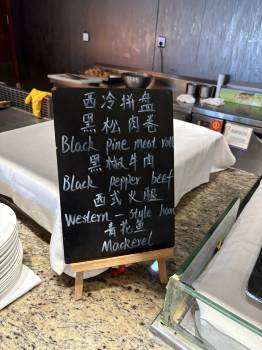 西冷拼盘
黑松肉卷
Black pine meat roll
黑椒牛肉
Black pepper beef
西式火腿
Western-style ham
青花鱼
Mackerel